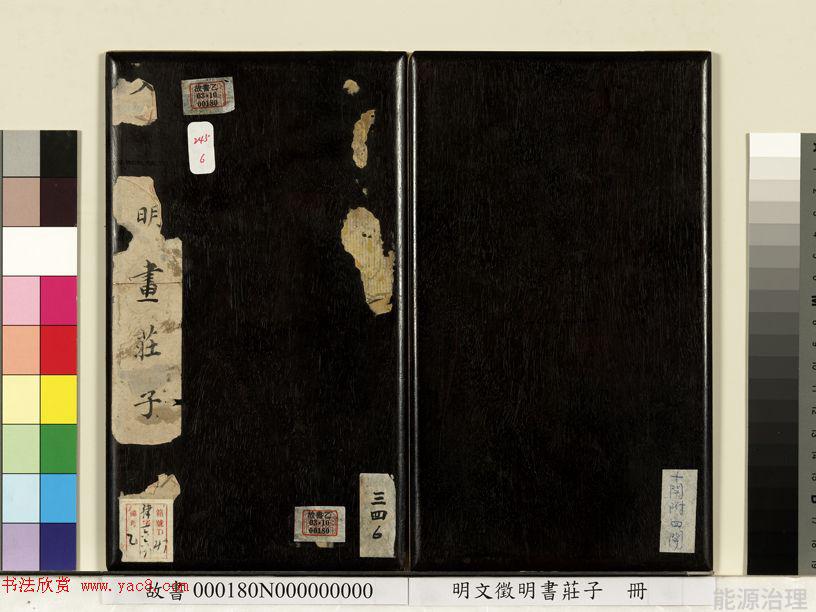 故書乙
03•10
00180
245
6
明
畫
莊
子
故書乙
03•10
00180
三四6
十開附四開
书法欣赏 www.yac8.com
故書 000180N000000000
明文徵明書莊子 冊
能源治理